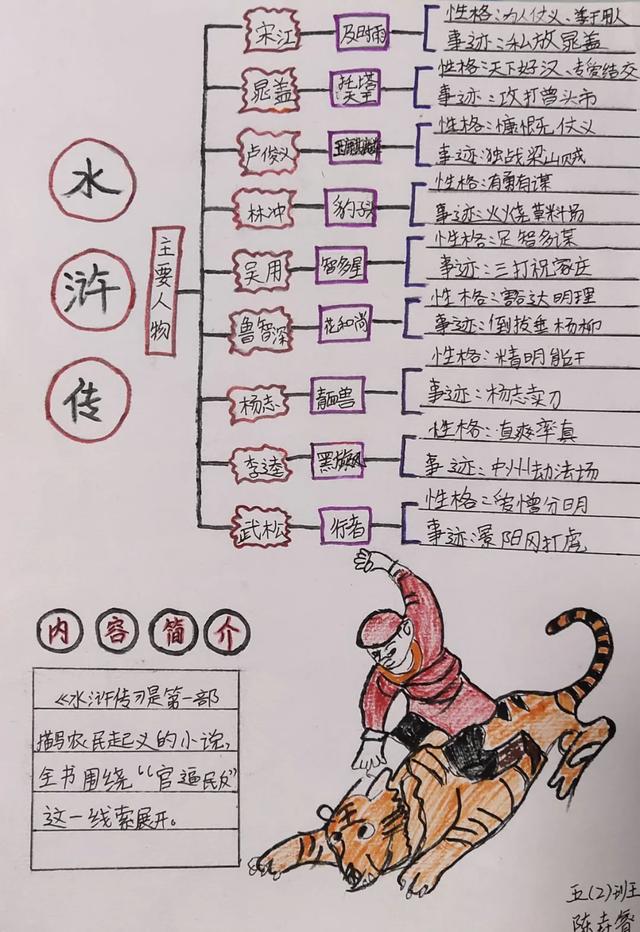 水浒传
主要人物
宋江 及时雨
性格：为人仗义、善于用人
事迹：私放晁盖
晁盖 托塔天王
性格：天下好汉、专爱结交
事迹：攻打曾头市
卢俊义 玉麒麟
性格：慷慨仗义
事迹：独战梁山贼
林冲 豹
性格：有勇有谋
事迹：火烧草料场
吴用 智多星
性格：足智多谋
事迹：三打祝家庄
鲁智深 花和尚
性格：豁达明理
事迹：倒拔垂杨柳
杨志 青面兽
性格：精明能干
事迹：杨志卖刀
李逵 黑旋风
性格：直爽率真
事迹：中州劫法场
武松 行者
性格：爱憎分明
事迹：景阳冈打虎
内容简介
《水浒传》是第一部
描写农民起义的小说，
全书围绕“官逼民反”
这一线索展开。
王
五(2)班王
陈垚睿